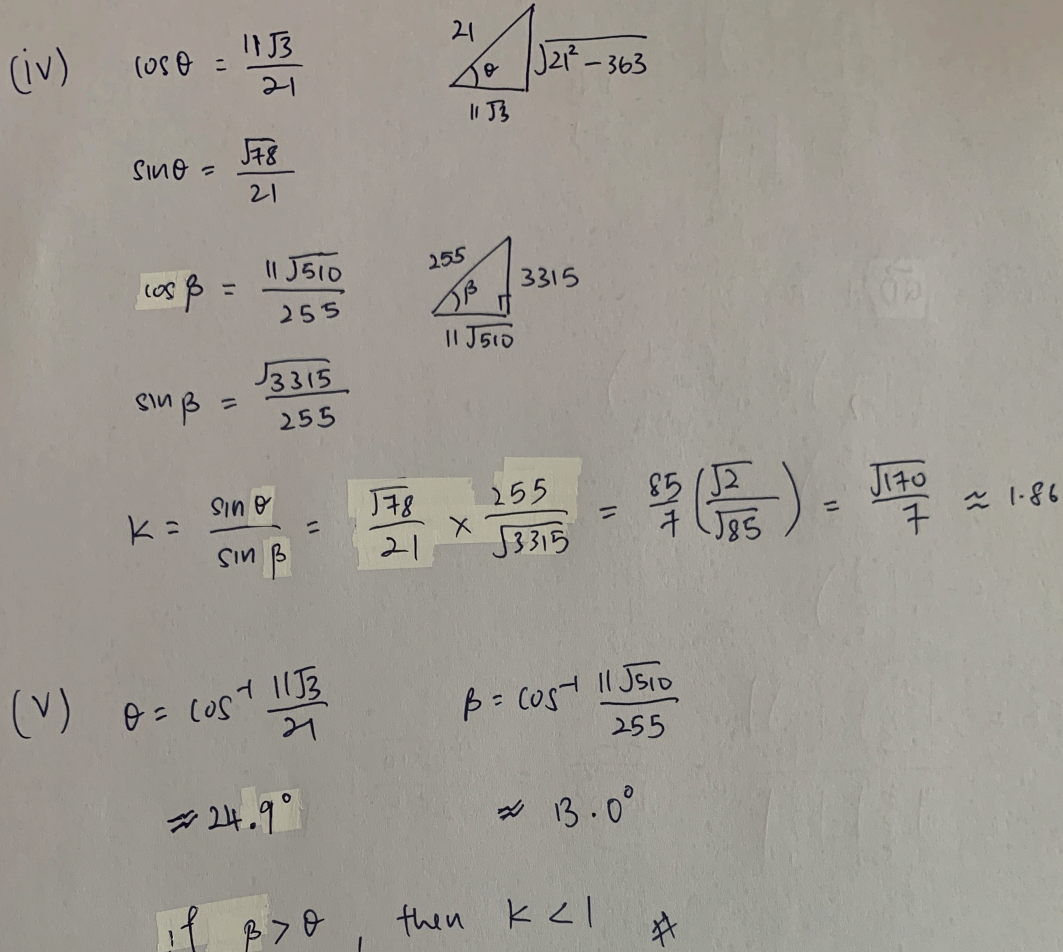 (iv) cosθ = 11√3/21
21 θ √(21² − 363)
11√3
sinθ = √78/21
cosβ = 11√510/255
255 β 3315
11√510
sinβ = √3315/255
K = sinθ/sinβ = √78/21 × 255/√3315 = 85/7 (√2/√85) = √170/7 ≈ 1.86
(v) θ = cos⁻¹ 11√3/21 β = cos⁻¹ 11√510/255
≈ 24.9° ≈ 13.0°
if β > θ , then K < 1 #